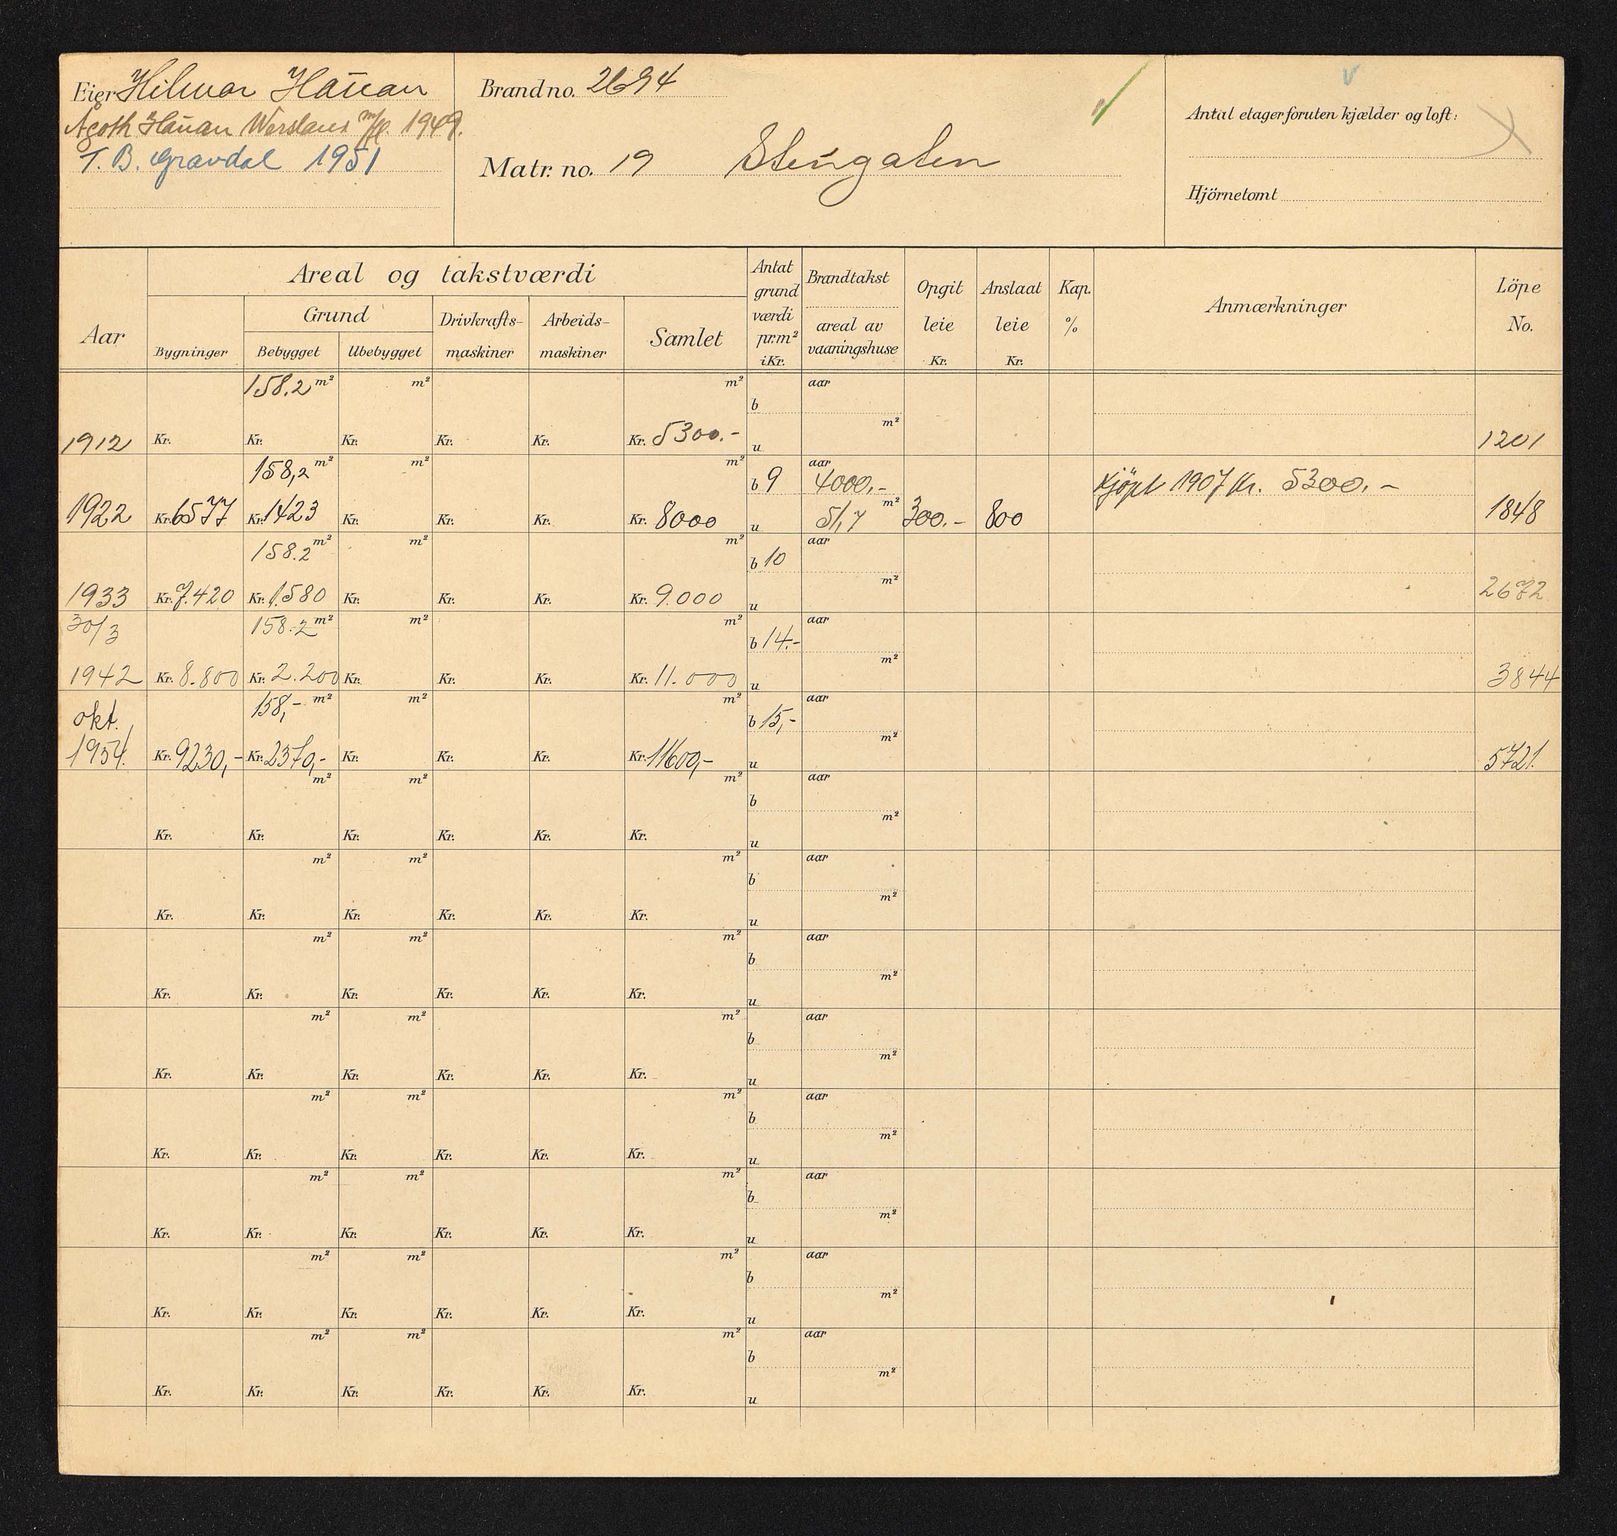 Eier Hilmar Hauan
Ågoth Hauan Werslans m/fl. 1949.
T. B. Gravdal 1951
Brand no. 2694
Matr. no. 19 Stengaten
Antal etager foruten kjælder og loft:
Hjörnetomt
Aar
Areal og takstværdi
Grund
Bygninger
Bebygget
Ubebygget
Drivkrafts-
maskiner
Arbeids-
maskiner
Samlet
Antat
grund
værdi
pr. m²
i Kr.
Brandtakst
areal av
vaaningshuse
Opgit
leie
Kr.
Anslaat
leie
Kr.
Kap.
%
Anmærkninger
Löpe
No.
158.2 m² m² m² aar
b
m²
1912 Kr. Kr. Kr. Kr. Kr. Kr. 5300.- u 1201
158,2 m² m² m² b 9 aar 4000.- Kjöpt 1907 Kr. 5300.-
1922 Kr. 6577 Kr. 1423 Kr. Kr. Kr. Kr. 8000 u m² 51,7 300.- 800 1848
158.2 m² m² m² b 10 aar
m²
1933 Kr. 7.420 Kr. 1.580 Kr. Kr. Kr. Kr. 9.000 u 2672
30/3 158.2 m² m² m² b 14.- aar
m²
1942 Kr. 8.800 Kr. 2.200 Kr. Kr. Kr. Kr. 11.000 u 3844
okt. 158,- m² m² m² b 15,- aar
m²
1954. Kr. 9230,- Kr. 2370,- Kr. Kr. Kr. Kr. 11600,- u 5721.
m² m² m² aar
b
m²
Kr. Kr. Kr. Kr. Kr. Kr. u
m² m² m² aar
b
m²
Kr. Kr. Kr. Kr. Kr. Kr. u
m² m² m² aar
b
m²
Kr. Kr. Kr. Kr. Kr. Kr. u
m² m² m² aar
b
m²
Kr. Kr. Kr. Kr. Kr. Kr. u
m² m² m² aar
b
m²
Kr. Kr. Kr. Kr. Kr. Kr. u
m² m² m² aar
b
m²
Kr. Kr. Kr. Kr. Kr. Kr. u
m² m² m² aar
b
m²
Kr. Kr. Kr. Kr. Kr. Kr. u
m² m² m² aar
b
m²
Kr. Kr. Kr. Kr. Kr. Kr. u